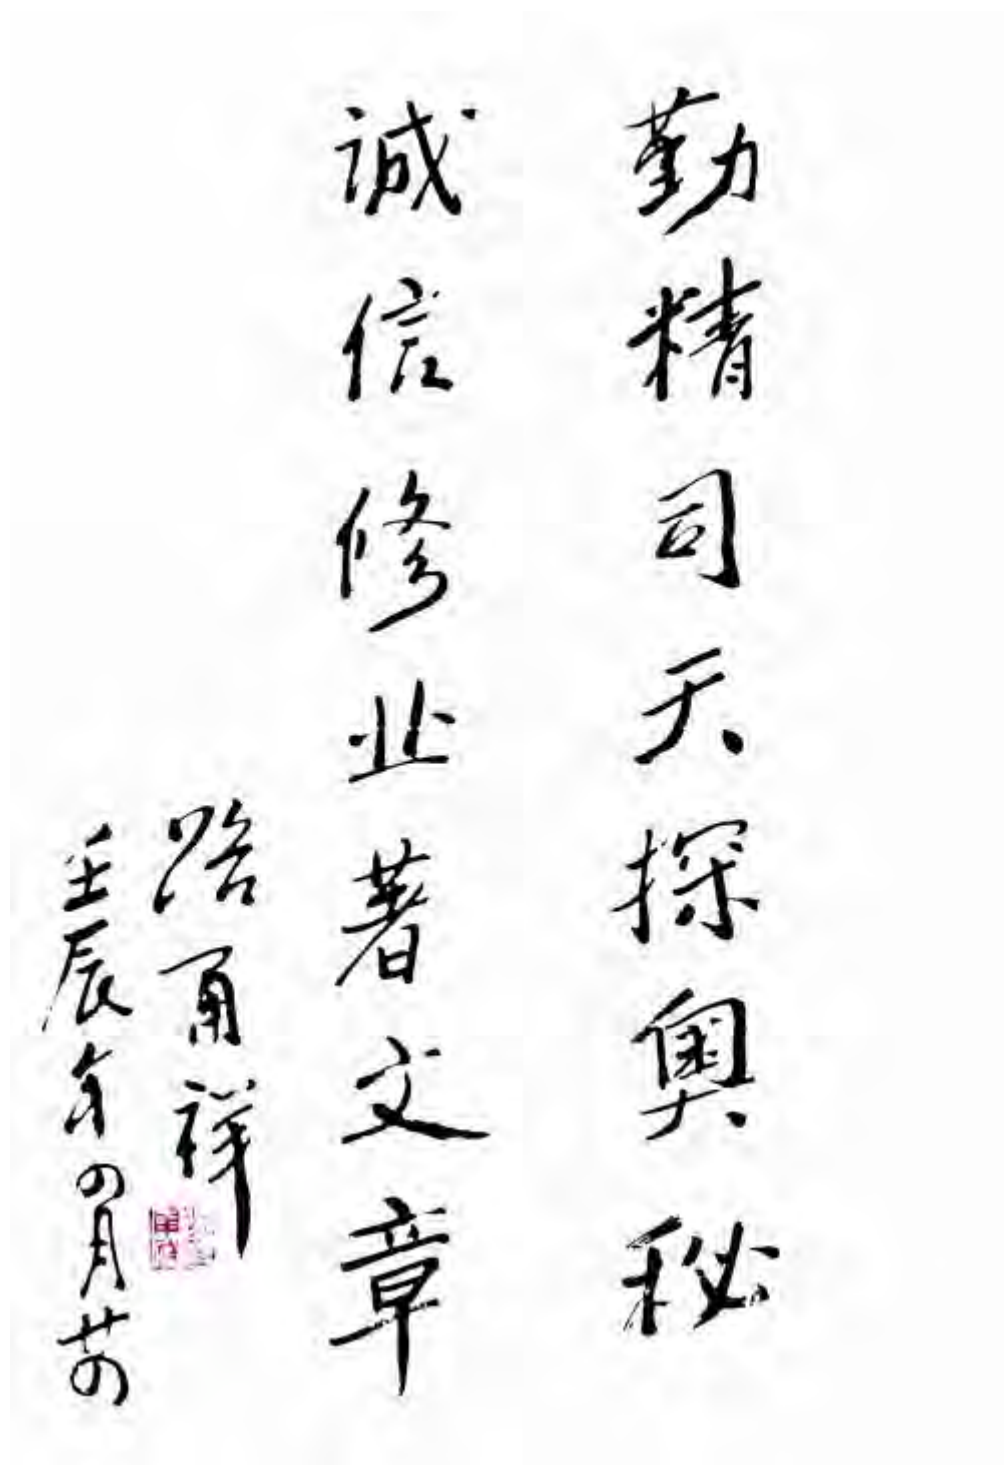 勤精司天探奥秘
誠信修业著文章
路甬祥
壬辰年四月廿四